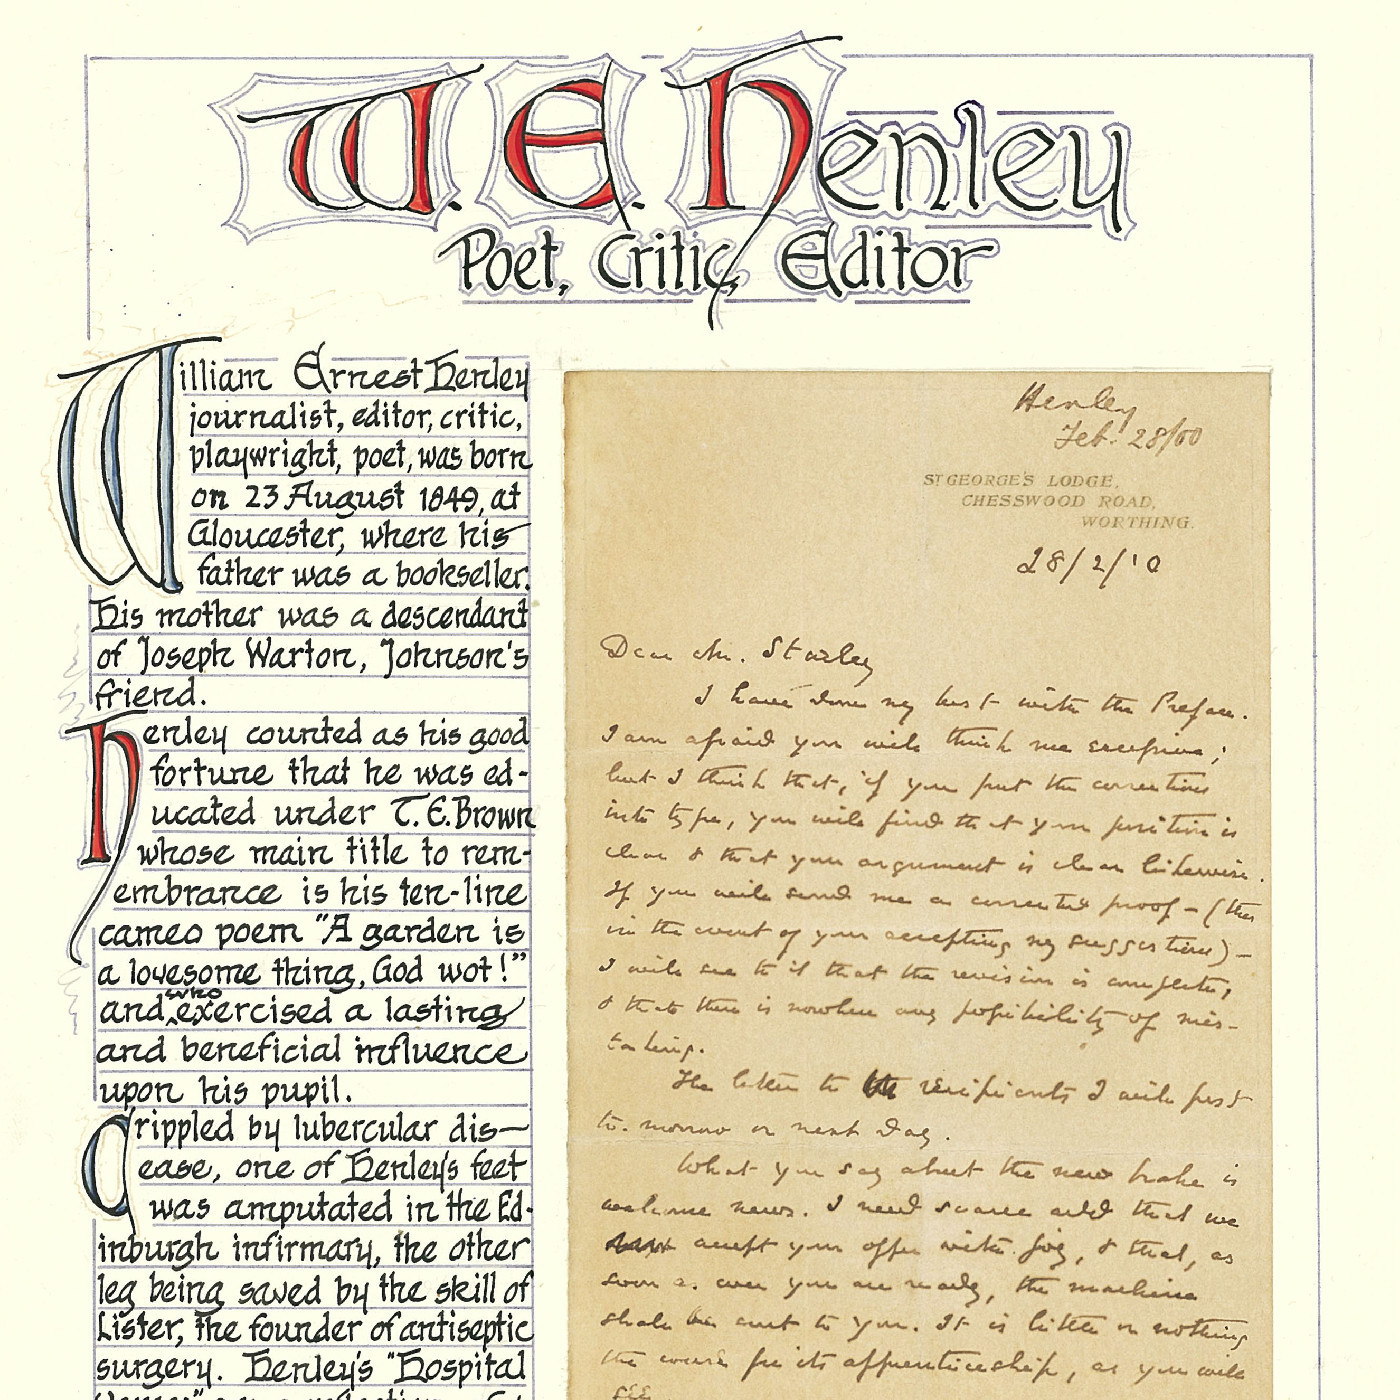 W. E. Henley
Poet, Critic, Editor
William Ernest Henley
journalist, editor, critic,
playwright, poet, was born
on 23 August 1849, at
Gloucester, where his
father was a bookseller.
His mother was a descendant
of Joseph Warton, Johnson's
friend.
Henley counted as his good
fortune that he was ed-
ucated under T. E. Brown
whose main title to rem-
embrance is his ten-line
cameo poem "A garden is
a lovesome thing, God wot!"
and, who exercised a lasting
and beneficial influence
upon his pupil.
Crippled by tubercular dis-
ease, one of Henley's feet
was amputated in the Ed-
inburgh infirmary, the other
leg being saved by the skill of
Lister, the founder of antiseptic
surgery. Henley's "Hospital
Henley
Feb. 28/00
ST GEORGE'S LODGE,
CHESSWOOD ROAD,
WORTHING.
28/2/'0
Dear Mr. Starley
I have done my best with the Preface.
I am afraid you will think me excessive;
but I think that, if you put the corrections
into type, you will find that your position is
clear & that your argument is clear likewise.
If you will send me a corrected proof – (this
in the event of your accepting my suggestions) –
I will see to it that the revision is complete,
& that there is nowhere any possibility of mis-
taking.
The letters to the recipients I will post
to-morrow or next day.
What you say about the new brake is
welcome news. I need scarce add that we
accept your offer with joy, & that, as
soon as ever you are ready, the machine
shall be sent to you. It is little or nothing
the worse for its apprenticeship, as you will
see